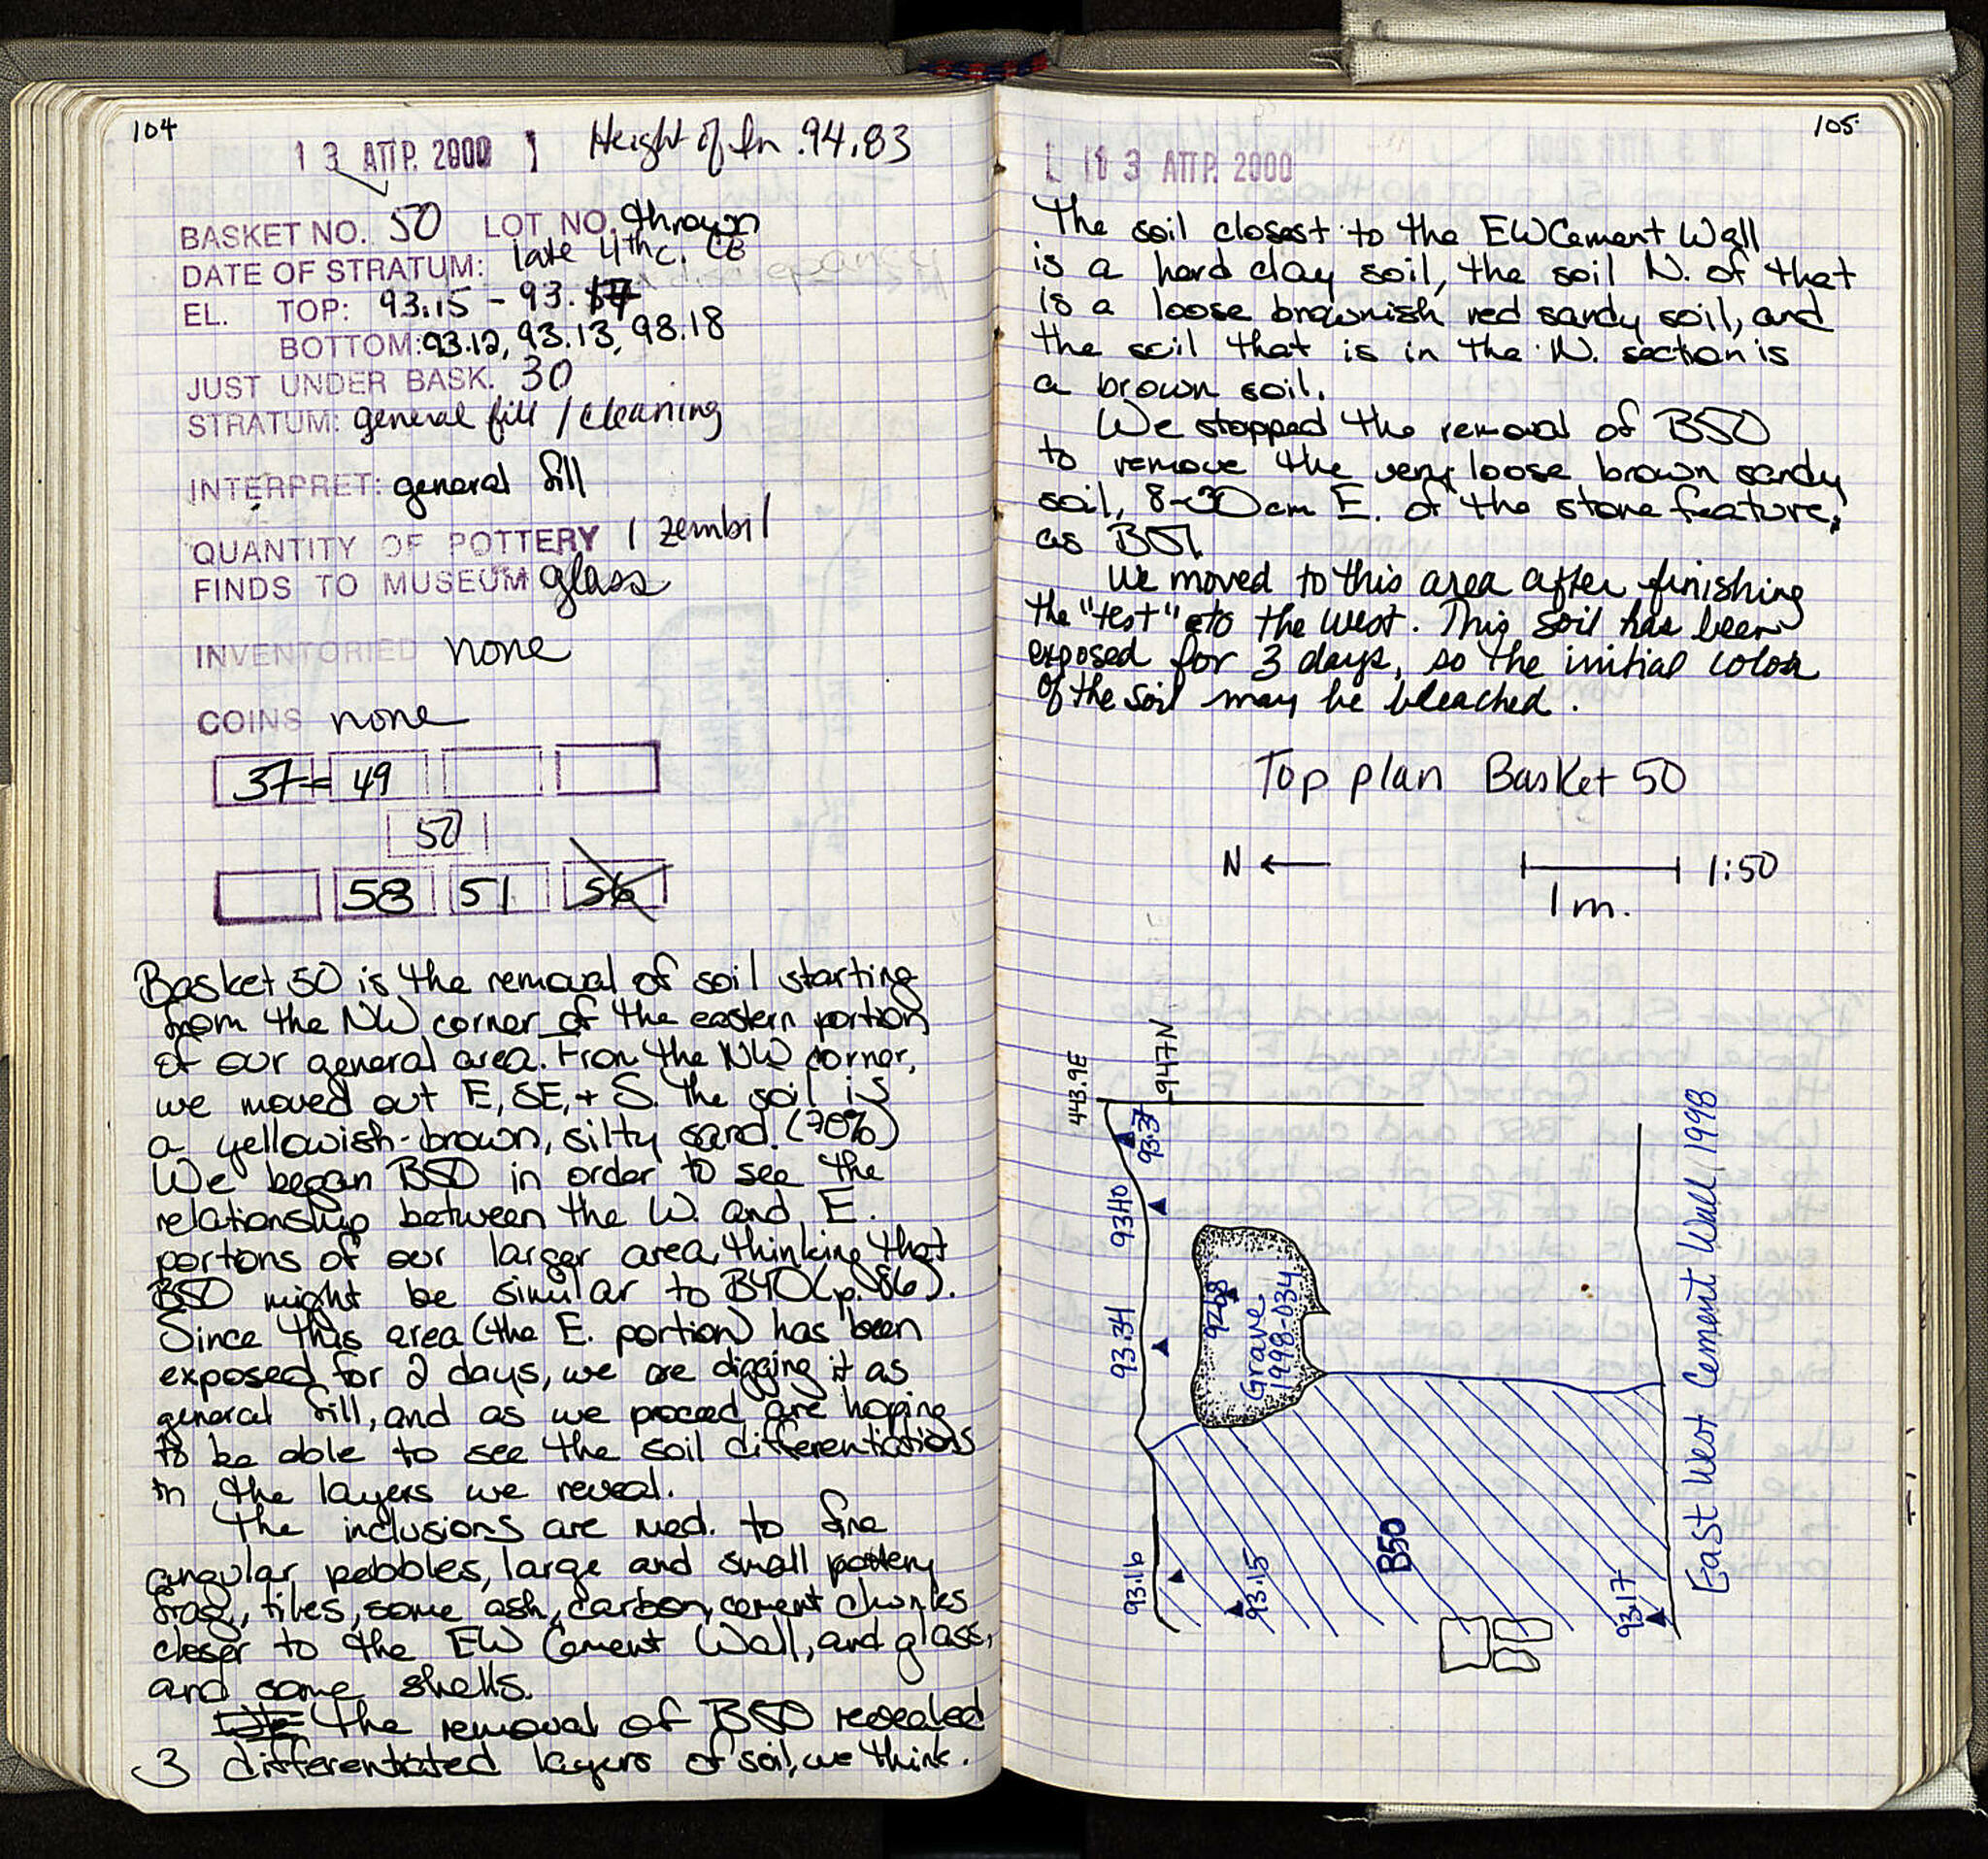 104
13 ΑΠΡ. 2000 Height of In. 94.83
BASKET NO. 50 LOT NO. thrown
DATE OF STRATUM: late 4th c. CB
EL. TOP: 93.15 - 93.17
BOTTOM: 93.12, 93.13, 93.18
JUST UNDER BASK. 30
STRATUM: general fill / cleaning
INTERPRET: general fill
QUANTITY OF POTTERY 1 zembil
FINDS TO MUSEUM glass
INVENTORIED none
COINS none
37 = 49
50
58 51 56
Basket 50 is the removal of soil starting
from the NW corner of the eastern portion
of our general area. From the NW corner,
we moved out E, SE, + S. The soil is
a yellowish-brown, silty sand. (70%)
We began B50 in order to see the
relationship between the W. and E.
portions of our larger area, thinking that
B50 might be similar to B40 (p. 86).
Since this area (the E. portion) has been
exposed for 2 days, we are digging it as
general fill, and as we proceed are hoping
to be able to see the soil differentiations
in the layers we reveal.
The inclusions are med. to fine
angular pebbles, large and small pottery
frag, tiles, some ash, carbon, cement chunks
closer to the EW Cement Wall, and glass,
and some shells.
The removal of B50 revealed
3 differentiated layers of soil, we think.
105
13 ΑΠΡ. 2000
The soil closest to the EW Cement Wall
is a hard clay soil, the soil N. of that
is a loose brownish red sandy soil, and
the soil that is in the N. section is
a brown soil.
We stopped the removal of B50
to remove the very loose brown sandy
soil, 8-30cm E. of the stone feature,
as B51.
We moved to this area after finishing
the "test" to the west. This soil has been
exposed for 3 days, so the initial color
of the soil may be bleached.
Top plan Basket 50
N ← 1:50
1 m.
443.9E
947N
93.37
93.40
93.34
92.68
Grave
1998-034
93.16
93.15
B50
93.17
East West Cement Wall 1998